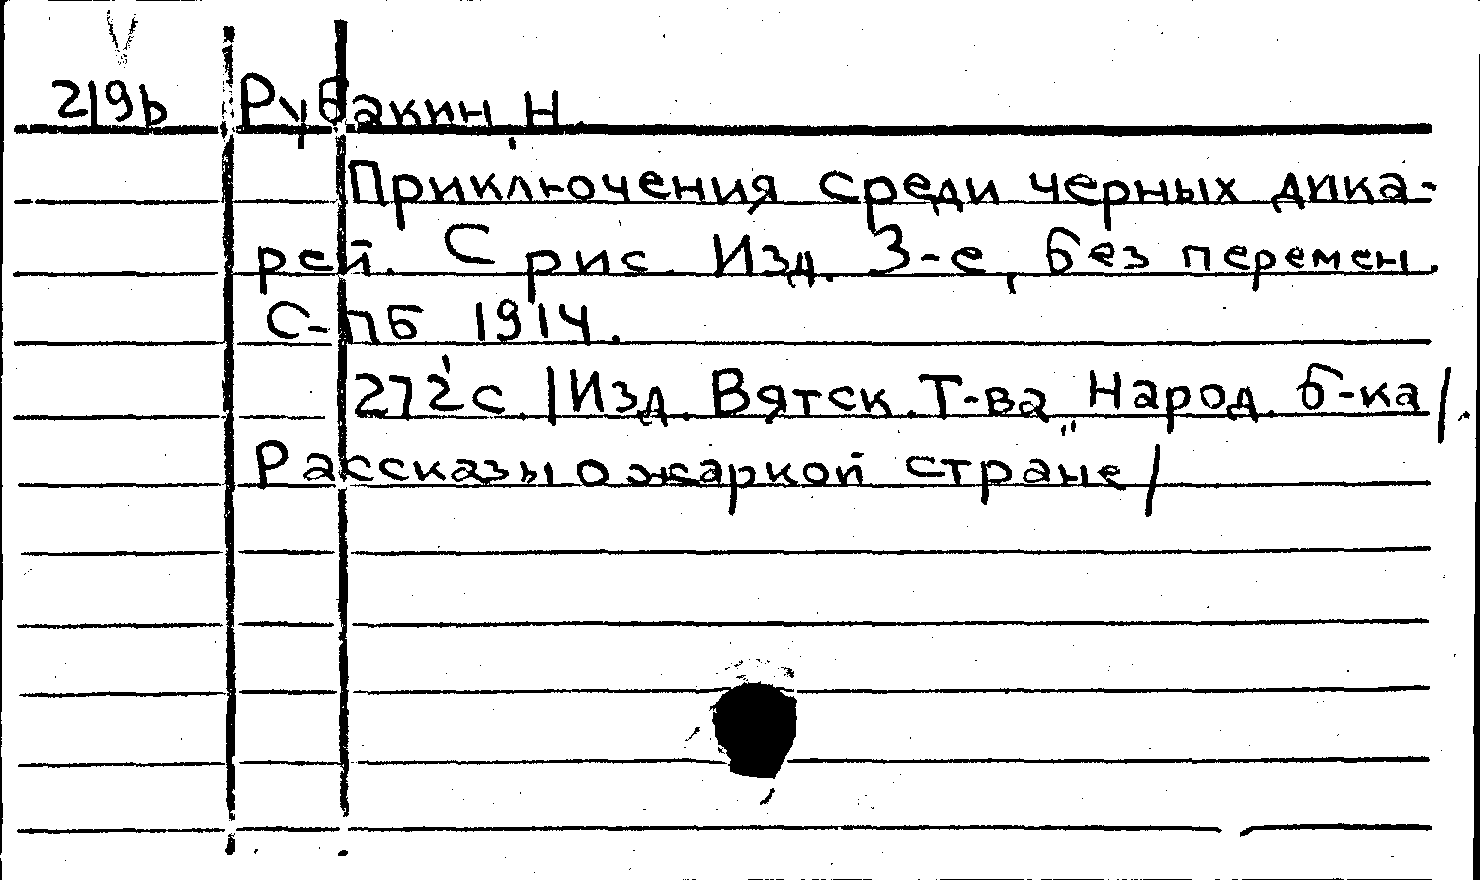 219b Рубакин, Н.
Приключения среди черных дика-
рей. С рис. Изд. 3-е, без перемен.
С-пб 1914.
272 с. /Изд. Вятск. Т-ва „Народ. б-ка/.
Рассказы о жаркой стране/